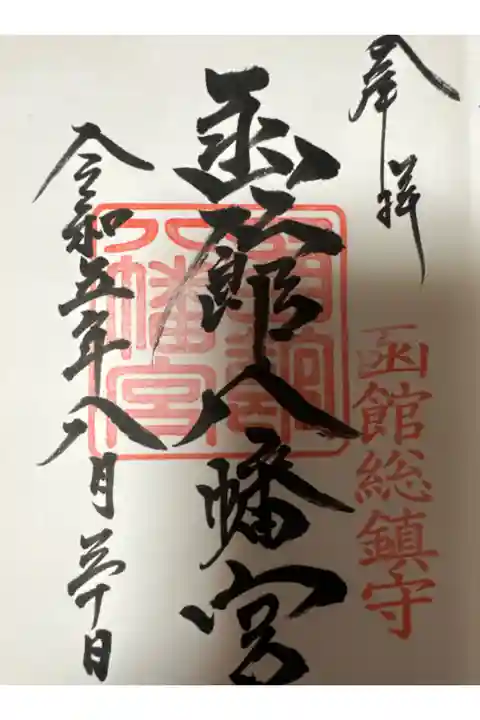 奉拝
函館総鎮守
函館八幡宮
函館
八幡宮
令和五年八月三十日